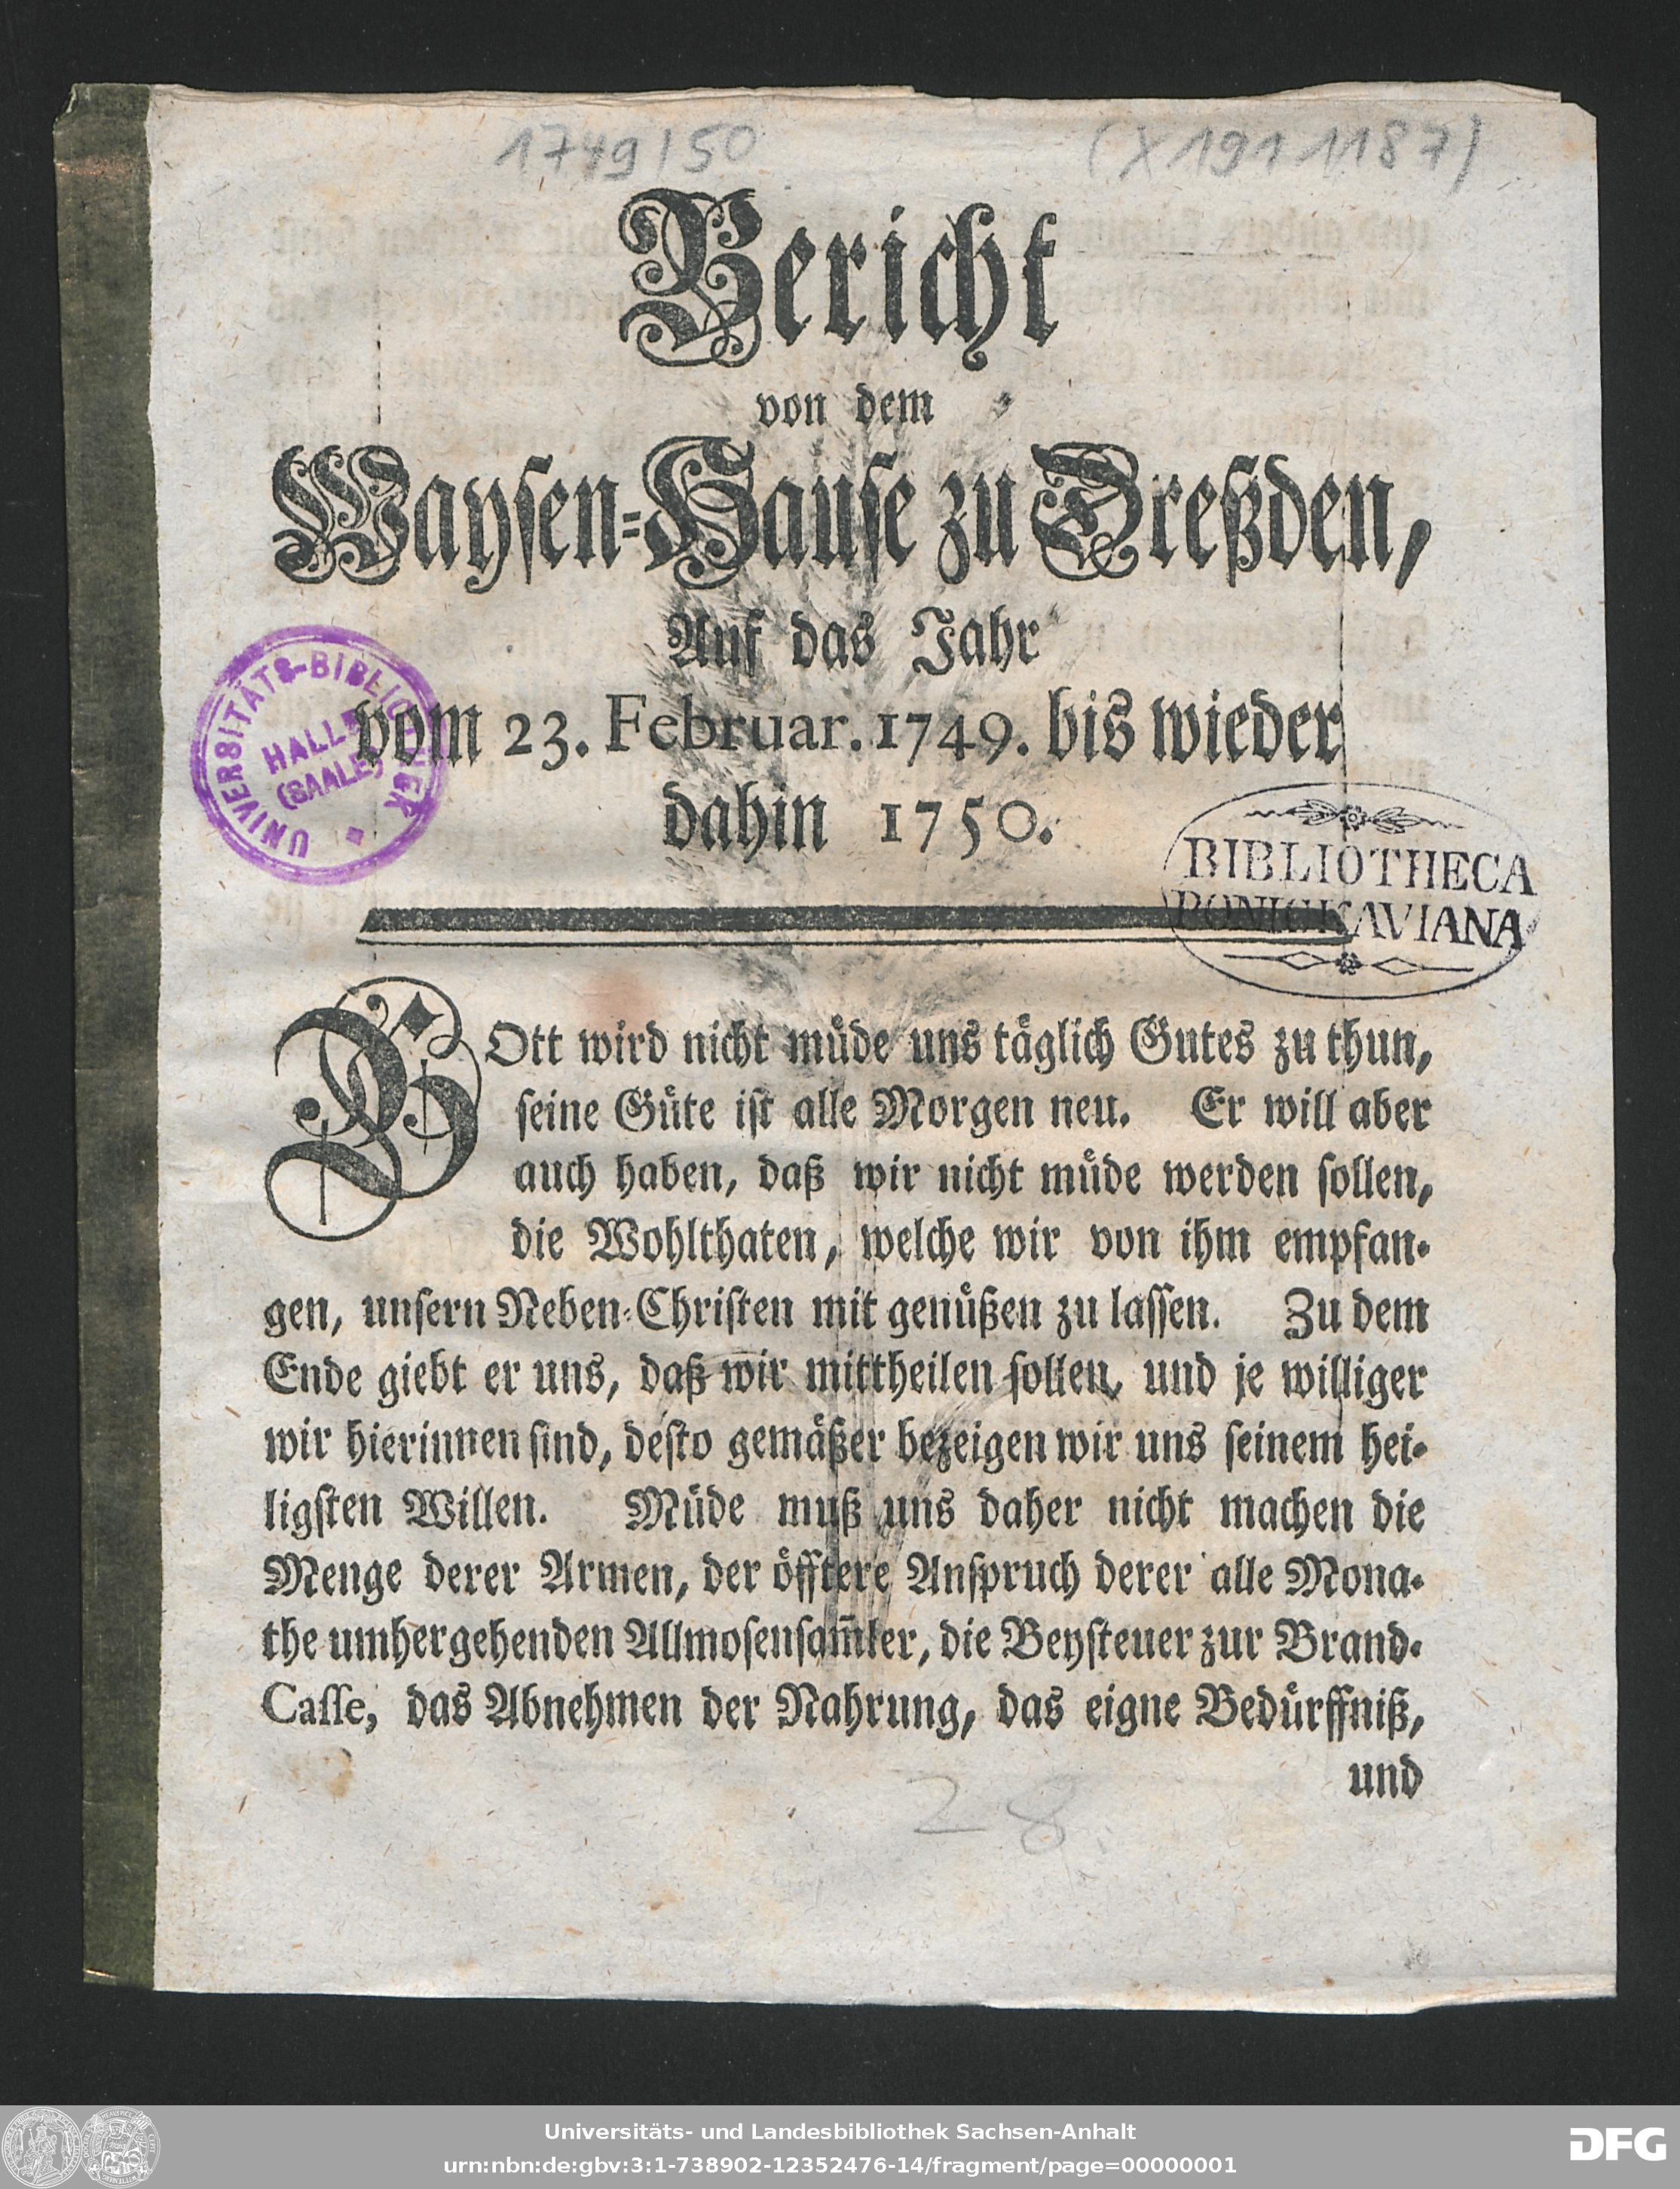 1749/50 (X1911187)
Bericht
von dem
Waysen-Hause zu Dreßden,
Auf das Jahr
vom 23. Februar. 1749. bis wieder
dahin 1750.
UNIVERSITÄTS-BIBLIOTHEK
HALLE
(SAALE)
BIBLIOTHECA
PONICKAVIANA
GOtt wird nicht müde uns täglich Gutes zu thun,
seine Güte ist alle Morgen neu. Er will aber
auch haben, daß wir nicht müde werden sollen,
die Wohlthaten, welche wir von ihm empfan-
gen, unsern Neben-Christen mit genüßen zu lassen. Zu dem
Ende giebt er uns, daß wir mittheilen sollen, und je williger
wir hierinnen sind, desto gemäßer bezeigen wir uns seinem hei-
ligsten Willen. Müde muß uns daher nicht machen die
Menge derer Armen, der öfftere Anspruch derer alle Mona-
the umhergehenden Allmosensam̄ler, die Beysteuer zur Brand-
Casse, das Abnehmen der Nahrung, das eigne Bedürffniß,
und
28
Universitäts- und Landesbibliothek Sachsen-Anhalt
urn:nbn:de:gbv:3:1-738902-12352476-14/fragment/page=00000001
DFG